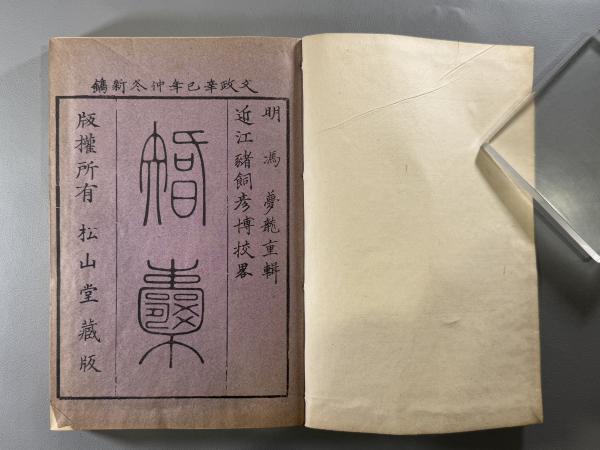 文政辛巳年仲冬新鐫
明 馮夢龍重輯
近江豬飼彦博挍畧
智囊
版權所有 松山堂藏版